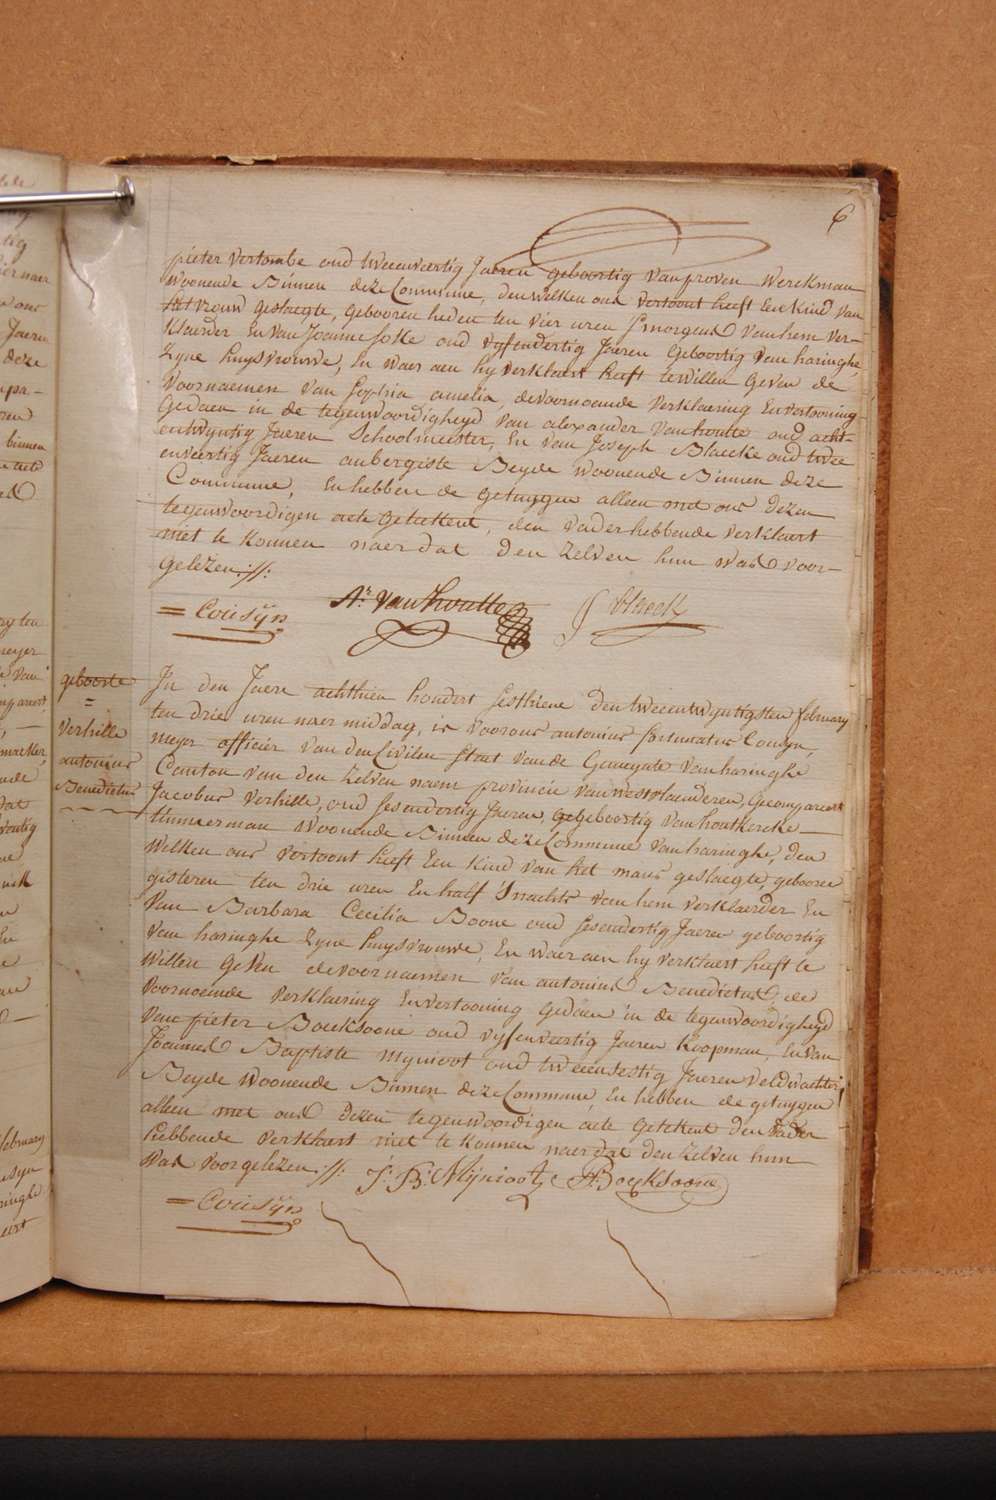 6
pieter vertombe oud tweenveertig Jaeren geboortig van proven werckman
woonende Binnen deze Commune, den welken ons vertoont heeft Een Kind van
Het vrouw geslaegte, gebooren heden ten vier uren s'morgens van hem ver-
klaerder En van Joanne foke oud vyfendertig Jaeren geboortig van haringhe,
Zyne huysvrouwe, En waer aen hy verklaert heeft te willen geven de
voornaemen van Sophia amelia, de voornoemde verklaering En vertooning
gedaen in de tegenwoordigheyd van alexander vanhoutte oud acht-
entwyntig Jaeren Schoolmeester, En van Joseph Blaecke oud twee
enveertig Jaeren aubergiste Beyde woonende Binnen deze
Commune, En hebben de getuygen alleen met ons dezen
tegenwoordigen acte getekent, den vader hebbende verklaert
niet te konnen naer dat den zelven hun was voor-
gelezen ://:
= Cousyn
Ar. Vanhoutte
J blaeck
geboorte
=
verhille
antonius
Benedictus
In den Jaere achthien hondert sesthiene den tweeentwyntigsten february
ten drie uren naer middag, is voor ons antonius fortunatus Cousyn,
meyer officier van den Civilen staet van de Gemeynte van haringhe
Canton van den zelven naem provincie van westvlaenderen, Gecompareert
Jacobus verhille, oud sesendertig Jaeren, gegeboortig van houtkercke
timmerman woonende Binnen deze Commune van haringhe, den
welken ons vertoont heeft Een kind van het mans geslaegte, gebooren
gisteren ten drie uren En half s'nachts van hem verklaerder En
van Barbara Cecilia Boone oud sesendertig Jaeren geboortig
van haringhe zyne huysvrouwe, En waer aen hy verklaert heeft te
willen geven de voornaemen van antonius Benedictus, de
voornoemde verklaering En vertooning gedaen in de tegenwoordigheyd
van pieter Boecksoone oud vyfenveertig Jaeren koopman, En van
Joannes Baptiste mynioot oud tweeensestig Jaeren veldwachter
Beyde woonende Binnen deze Commune, En hebben de getuygen
alleen met ons dezen tegenwoordigen acte getekent den vader
hebbende verklaert niet te konnen naer dat den zelven hun
was voorgelezen ://: J: B: Mijnioot PBoecksoone
= Cousyn